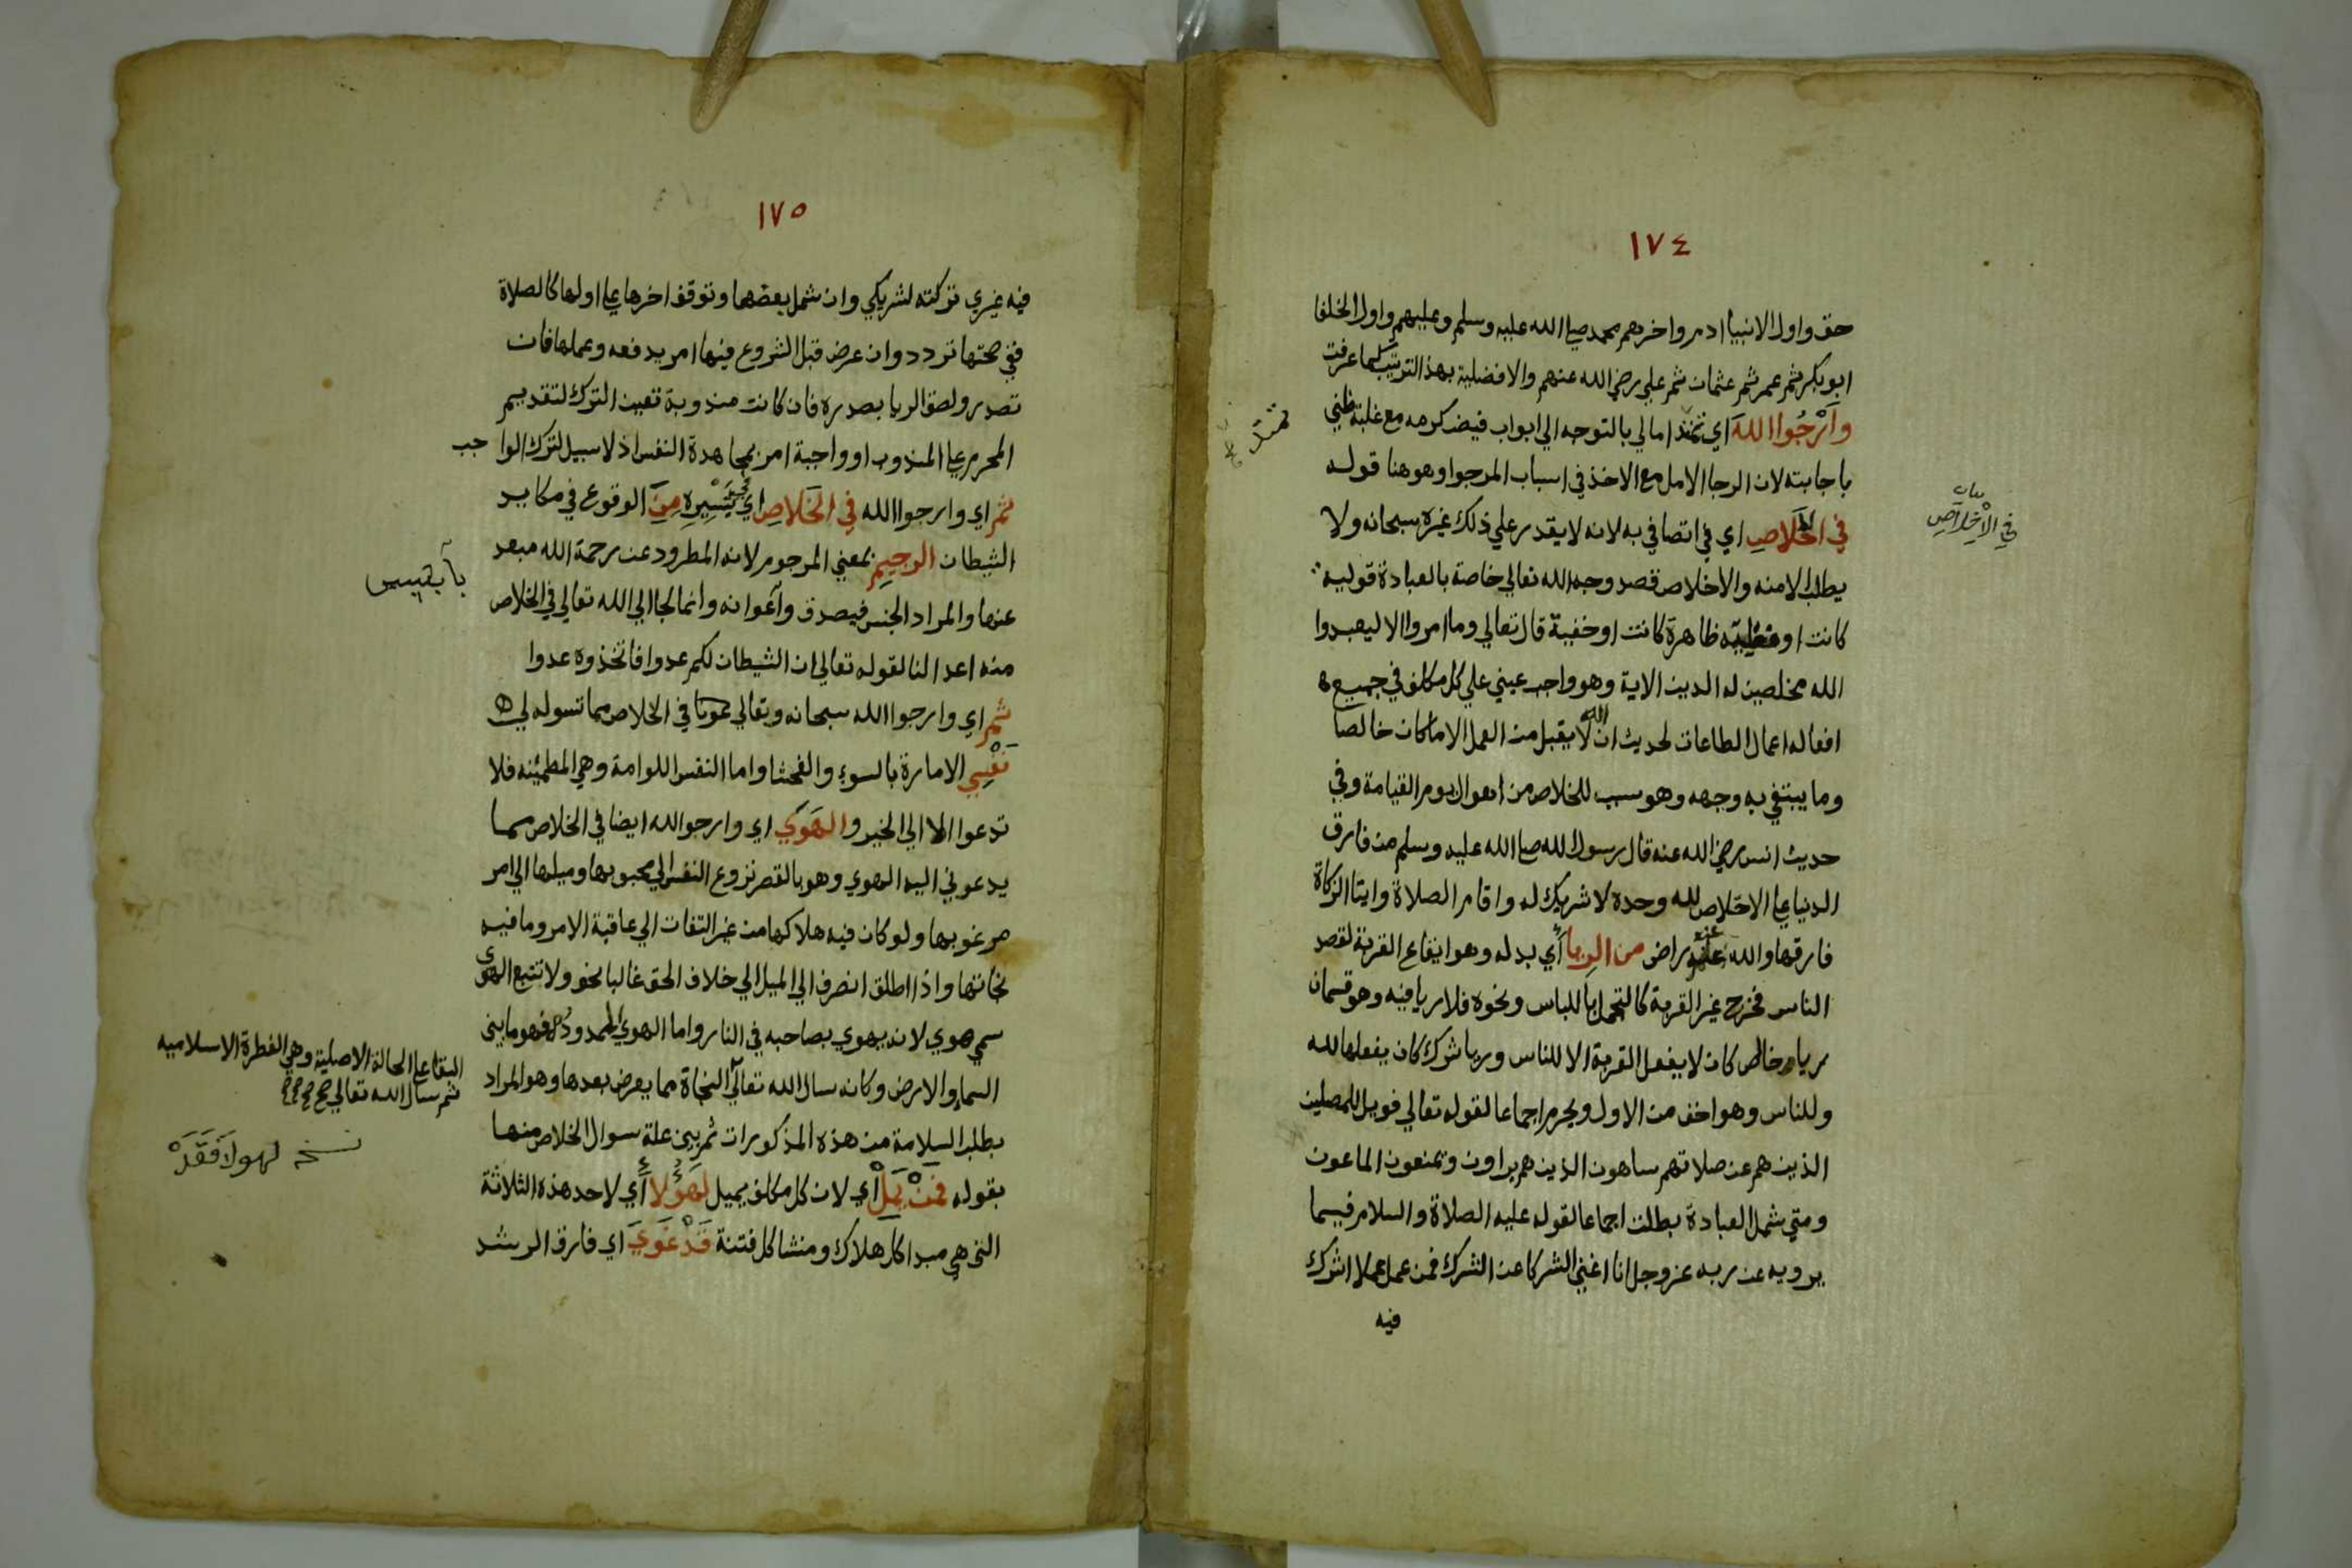 ١٧٤
حق واول الانبيا ادم واخرهم محمد صلي الله عليه وسلم وعليهم واول الخلفا
ابو بكر ثم عمر ثم عثمان ثم علي رضي الله عنهم والافضلية بهذا الترتيب كما عرفت
وَأرْجُوا اللهَ اي امالي بالتوجه الي ابواب فيض كرمه مع غلبة ظني
باجابته لان الرجا الامل مع الاخذ في اسباب المرجوا وهو هنا قوله
في الخَلاصِ اي في اتصافي به لانه لا يقدر علي ذلك غيره سبحانه ولا
يطلب الا منه والاخلاص قصد وجه الله تعالي خاصة بالعبادة قولية
كانت او فعلية ظاهرة كانت او خفية قال تعالي وما امروا الا ليعبدوا
الله مخلصين له الدين الاية وهو واجب عيني علي كل مكلف في جميع
افعاله اعمال الطاعات لحديث ان الله لا يقبل من العمل الا ما كان خالصا
وما يبتغي به وجهه وهو سبب للخلاص من اهوال يوم القيامة وفي
حديث انس رضي الله عنه قال رسول الله صلي الله عليه وسلم من فارق
الدنيا علي الاخلاص لله وحده لا شريك له واقام الصلاة وايتا الزكاة
فارقها والله عنه راض من الرِيا أي بدله وهو ايقاع القربة لقصد
الناس فخرج غير القربة كالتجمل باللباس ونحوه فلا ريا فيه وهو قسمان
رياء خالص كان لا يفعل القربة الا للناس وريا شرك كان يفعلها لله
وللناس وهو اخف من الاول ويحرم اجماعا لقوله تعالي فويل للمصلين
الذين هم عن صلاتهم ساهون الذين هم يراون ويمنعون الماعون
ومتي شمل العبادة بطلت اجماعا لقوله عليه الصلاة والسلام فيما
يرويه عن ربه عز وجل انا اغني الشركا عن الشرك فمن عمل عملا اشرك
فيه
بيان
في الاخلاص
١٧٥
فيه غيري تركته لشريكي وان شمل بعضها وتوقف اخرها علي اولها كالصلاة
ففي صحتها تردد وان عرض قبل الشروع فيها امر بدفعه وعملها فان
تعذر ولصق الريا بصدره فان كانت مندوبة تعين الترك لتقديم
المحرم علي المندوب او واجبة امر بمجاهدة النفس اذ لا سبيل لترك الواجب
ثم اي وارجوا الله في الخَلاصِ اي مِنَ الوقوع في مكايد
الشيطان الرجيمِ بمعني المرجوم لانه المطرود عن رحمة الله مبعد
عنها والمراد الجنس فيصدق واعوانه وانما لجا الي الله تعالي في الخلاص
منه اعد لنا لقوله تعالي ان الشيطان لكم عدوا فاتخذوه عدوا
ثم اي وارجوا الله سبحانه وتعالي في الخلاص مما تسوله لي
نَفْسِي الامارة بالسوء والفحشا واما النفس اللوامة وهي المطمئنه فلا
تدعوا الا الي الخير والهَوَي اي وارجوا لله ايضا في الخلاص مما
يدعوني اليه الهوي وهو بالقصر نزوع النفس الي محبوبها وميلها الي امر
مرغوبها ولو كان فيه هلاكها من غير التفات الي عاقبة الامر وما فيه
نجاتها واذا اطلق انصرف الي الميل الي خلاف الحق غالبا نحو ولا تتبع الهوي
سمي هوي لانه يهوي بصاحبه في النار واما الهوي الممدود فهو ما بين
السما والارض وكانه سال الله تعالي النجاة مما يعرض بعدها وهو المراد
بطلب السلامة من هذه المذكورات ثم بين علة سوال الخلاص منها
بقوله فمَنْ يَمِلْ أي لان كل مكلف يميل لهَؤُلا أي لاحد هذه الثلاثة
التي هي مبدا كل هلاك ومنشا كل فتنة قَدْ غَوَي اي فارق الرشد
البقا علي الحالة الاصلية وهي الفطرة الاسلاميه
ثم سال الله تعالي
نسخه لهولا فَقَدْ